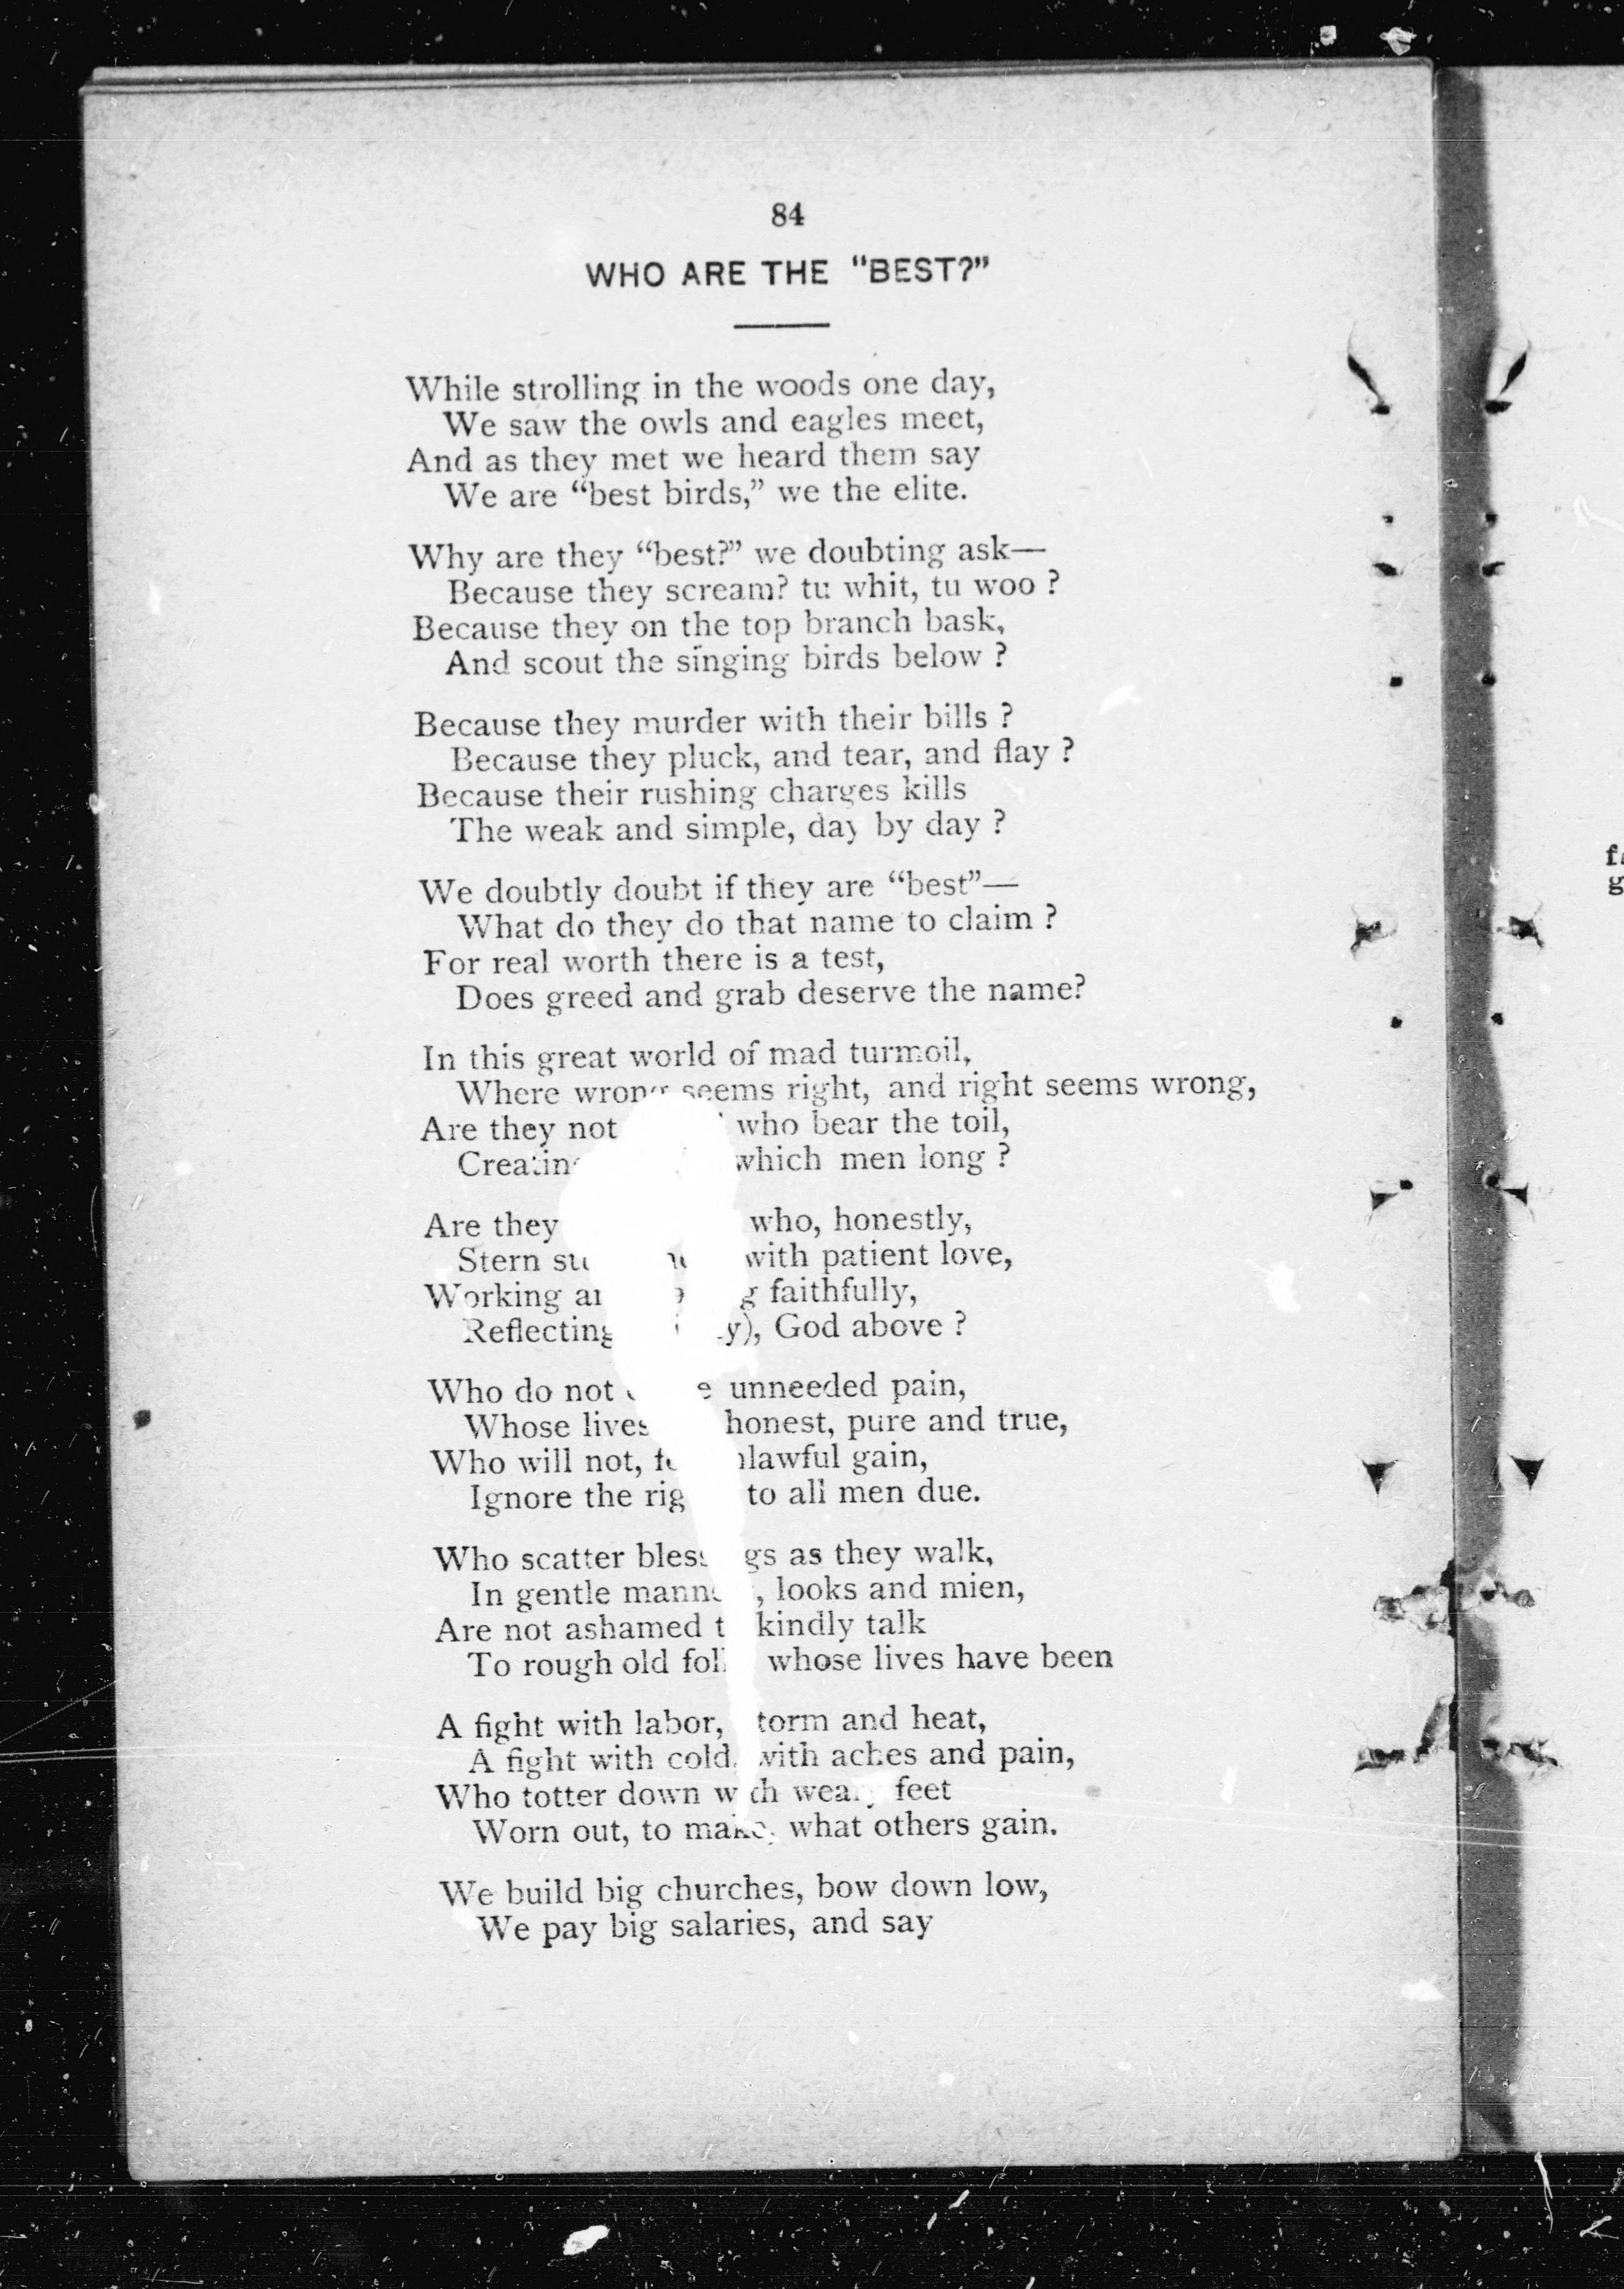 84
WHO ARE THE "BEST?"
While strolling in the woods one day,
We saw the owls and eagles meet,
And as they met we heard them say
We are "best birds," we the elite.
Why are they "best?" we doubting ask—
Because they scream? tu whit, tu woo ?
Because they on the top branch bask,
And scout the singing birds below ?
Because they murder with their bills ?
Because they pluck, and tear, and flay ?
Because their rushing charges kills
The weak and simple, day by day ?
We doubtly doubt if they are "best"—
What do they do that name to claim ?
For real worth there is a test,
Does greed and grab deserve the name?
In this great world of mad turmoil,
Where wrong seems right, and right seems wrong,
Are they not who bear the toil,
which men long ?
Are they who, honestly,
Stern with patient love,
Working faithfully,
Reflecting God above ?
Who do not unneeded pain,
Whose lives honest, pure and true,
Who will not, unlawful gain,
Ignore the to all men due.
Who scatter blessings as they walk,
In gentle looks and mien,
Are not ashamed to kindly talk
To rough old whose lives have been
A fight with labor, storm and heat,
A fight with cold, with aches and pain,
Who totter down with weary feet
Worn out, to make, what others gain.
We build big churches, bow down low,
We pay big salaries, and say